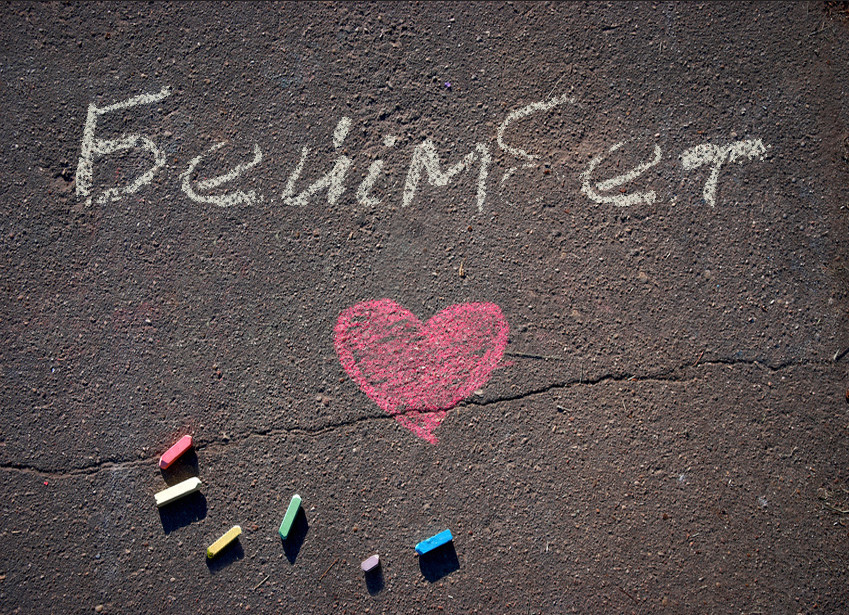 Бейімбет